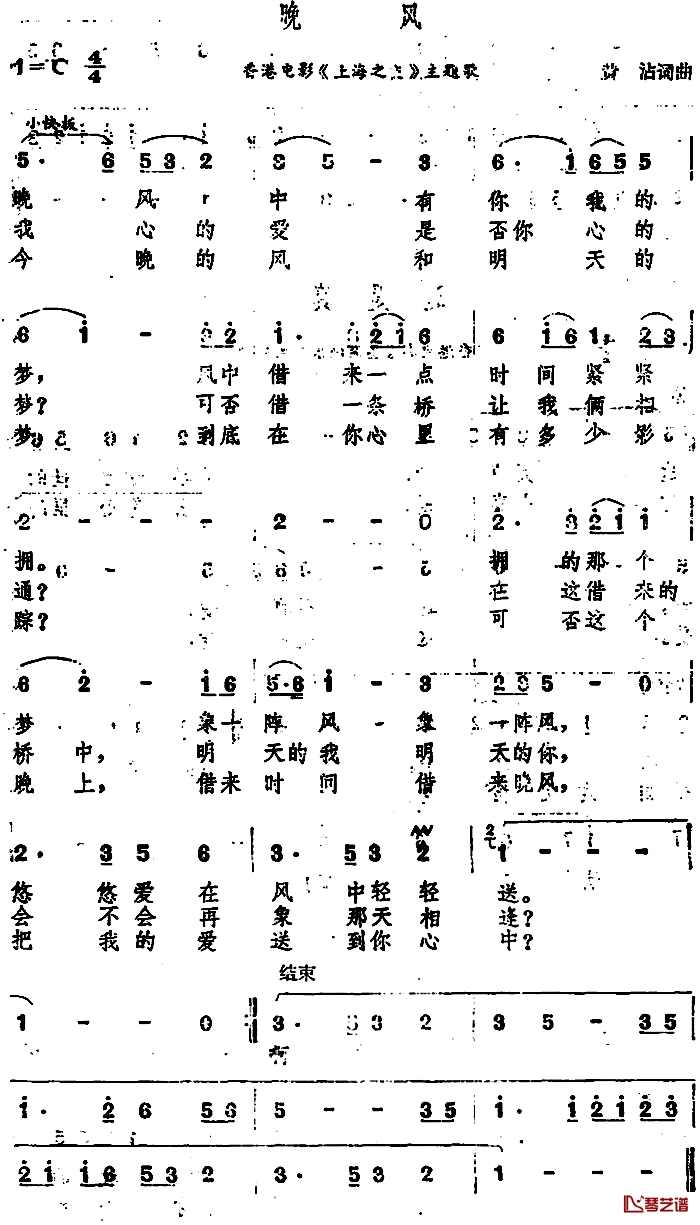 晚 风
1=C 4/4 香港电影《上海之 》主题歌 沾词曲
小快板
5· 6 5 3 2 5 - 3 6· 1 6 5 5
晚 风 中 有 你 我 的
我 心 的 爱 是 否 你 心 的
今 晚 的 风 和 明 天 的
6 1 - 2 1· 2 1 6 6 1 6 1 2 3
梦， 风 中 借 来 一 点 时 间 紧 紧
梦？ 可 否 借 一 条 桥 让 我 俩 相
梦 到 底 在 你 心 里 有 多 少 影
2 - - - 2 - - 0 2· 3 2 1 1
拥。 拥 的 那 个
通？ 在 这 借 来 的
踪？ 可 否 这 个
6 2 - 1 6 5· 6 1 - 3 2 5 - 0
梦 象 一 阵 风 象 一 阵 风，
桥 中， 明 天 的 我 明 天 的 你，
晚 上， 借 来 时 间 借 来 晚 风，
2· 3 5 6 3· 5 3 2 1 - - -
悠 悠 爱 在 风 中 轻 轻 送。
会 不 会 再 象 那 天 相 逢？
把 我 的 爱 送 到 你 心 中？
结束
1 - - 0 3· 5 3 2 3 5 - 3 5
啊
1· 2 6 5 6 5 - - 3 5 1· 1 1 2 1 2 3
2 1 1 6 5 3 2 3· 5 3 2 1 - - -
琴艺谱